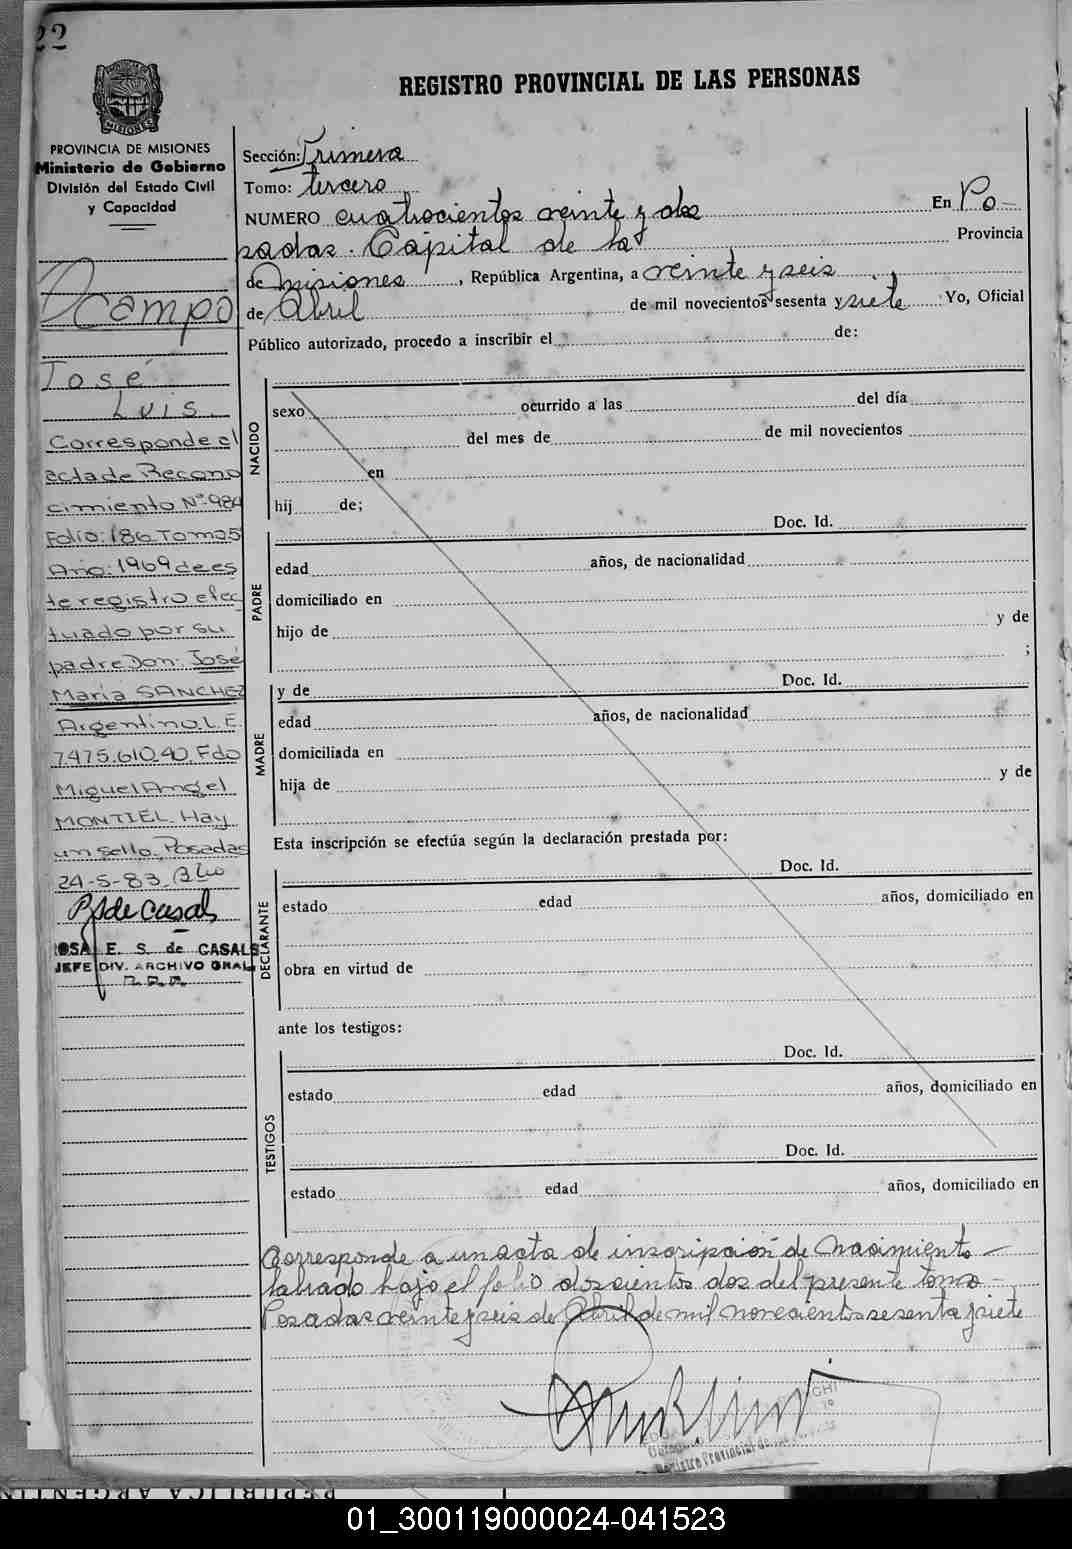 22
PROVINCIA DE MISIONES
Ministerio de Gobierno
División del Estado Civil
y Capacidad
Ocampo
José
Luis.
Corresponde el
acta de Recono
cimiento Nº 984
Folio: 186 Tomo 5
Año: 1969 de es
te registro efec
tuado por su
padre Don: José
María SANCHEZ
Argentino L.E.
7.475.610.40. Fdo
Miguel Angel
MONTIEL. Hay
un sello. Posadas
24-5-83.
R S de Casals
ROSA E. S. de CASALS
JEFE DIV. ARCHIVO GRAL
R.P.P.
REGISTRO PROVINCIAL DE LAS PERSONAS
Sección: Primera
Tomo: tercero
NUMERO cuatrocientos veinte y dos En Po-
sadas. Capital de la Provincia
de Misiones, República Argentina, a veinte y seis
de Abril de mil novecientos sesenta y siete Yo, Oficial
Público autorizado, procedo a inscribir el de:
NACIDO
sexo ocurrido a las del día
del mes de de mil novecientos
en
hij de;
Doc. Id.
PADRE
edad años, de nacionalidad
domiciliado en
hijo de y de
;
y de Doc. Id.
MADRE
edad años, de nacionalidad
domiciliada en
hija de y de
Esta inscripción se efectúa según la declaración prestada por:
Doc. Id.
DECLARANTE
estado edad años, domiciliado en
obra en virtud de
ante los testigos:
Doc. Id.
TESTIGOS
estado edad años, domiciliado en
Doc. Id.
estado edad años, domiciliado en
Corresponde a un acta de inscripción de Nacimiento
labrado bajo el folio doscientos dos del presente tomo
Posadas veinte y seis de Abril de mil novecientos sesenta y siete
Registro Provincial de
REPUBLICA ARGENTIN
01_300119000024-041523